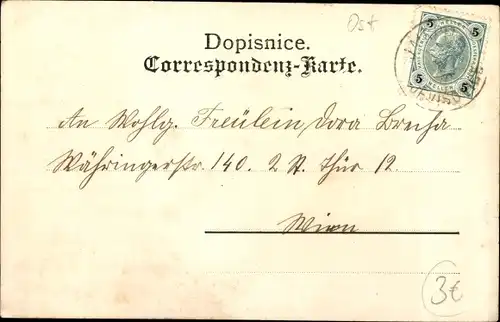 Ost
5 5
5 5
Dopisnice.
Correspondenz-Karte.
An Wohlg. Freülein Dora Brecha
Währingerstr. 140. 2 St. Thür 12.
Wien
3€